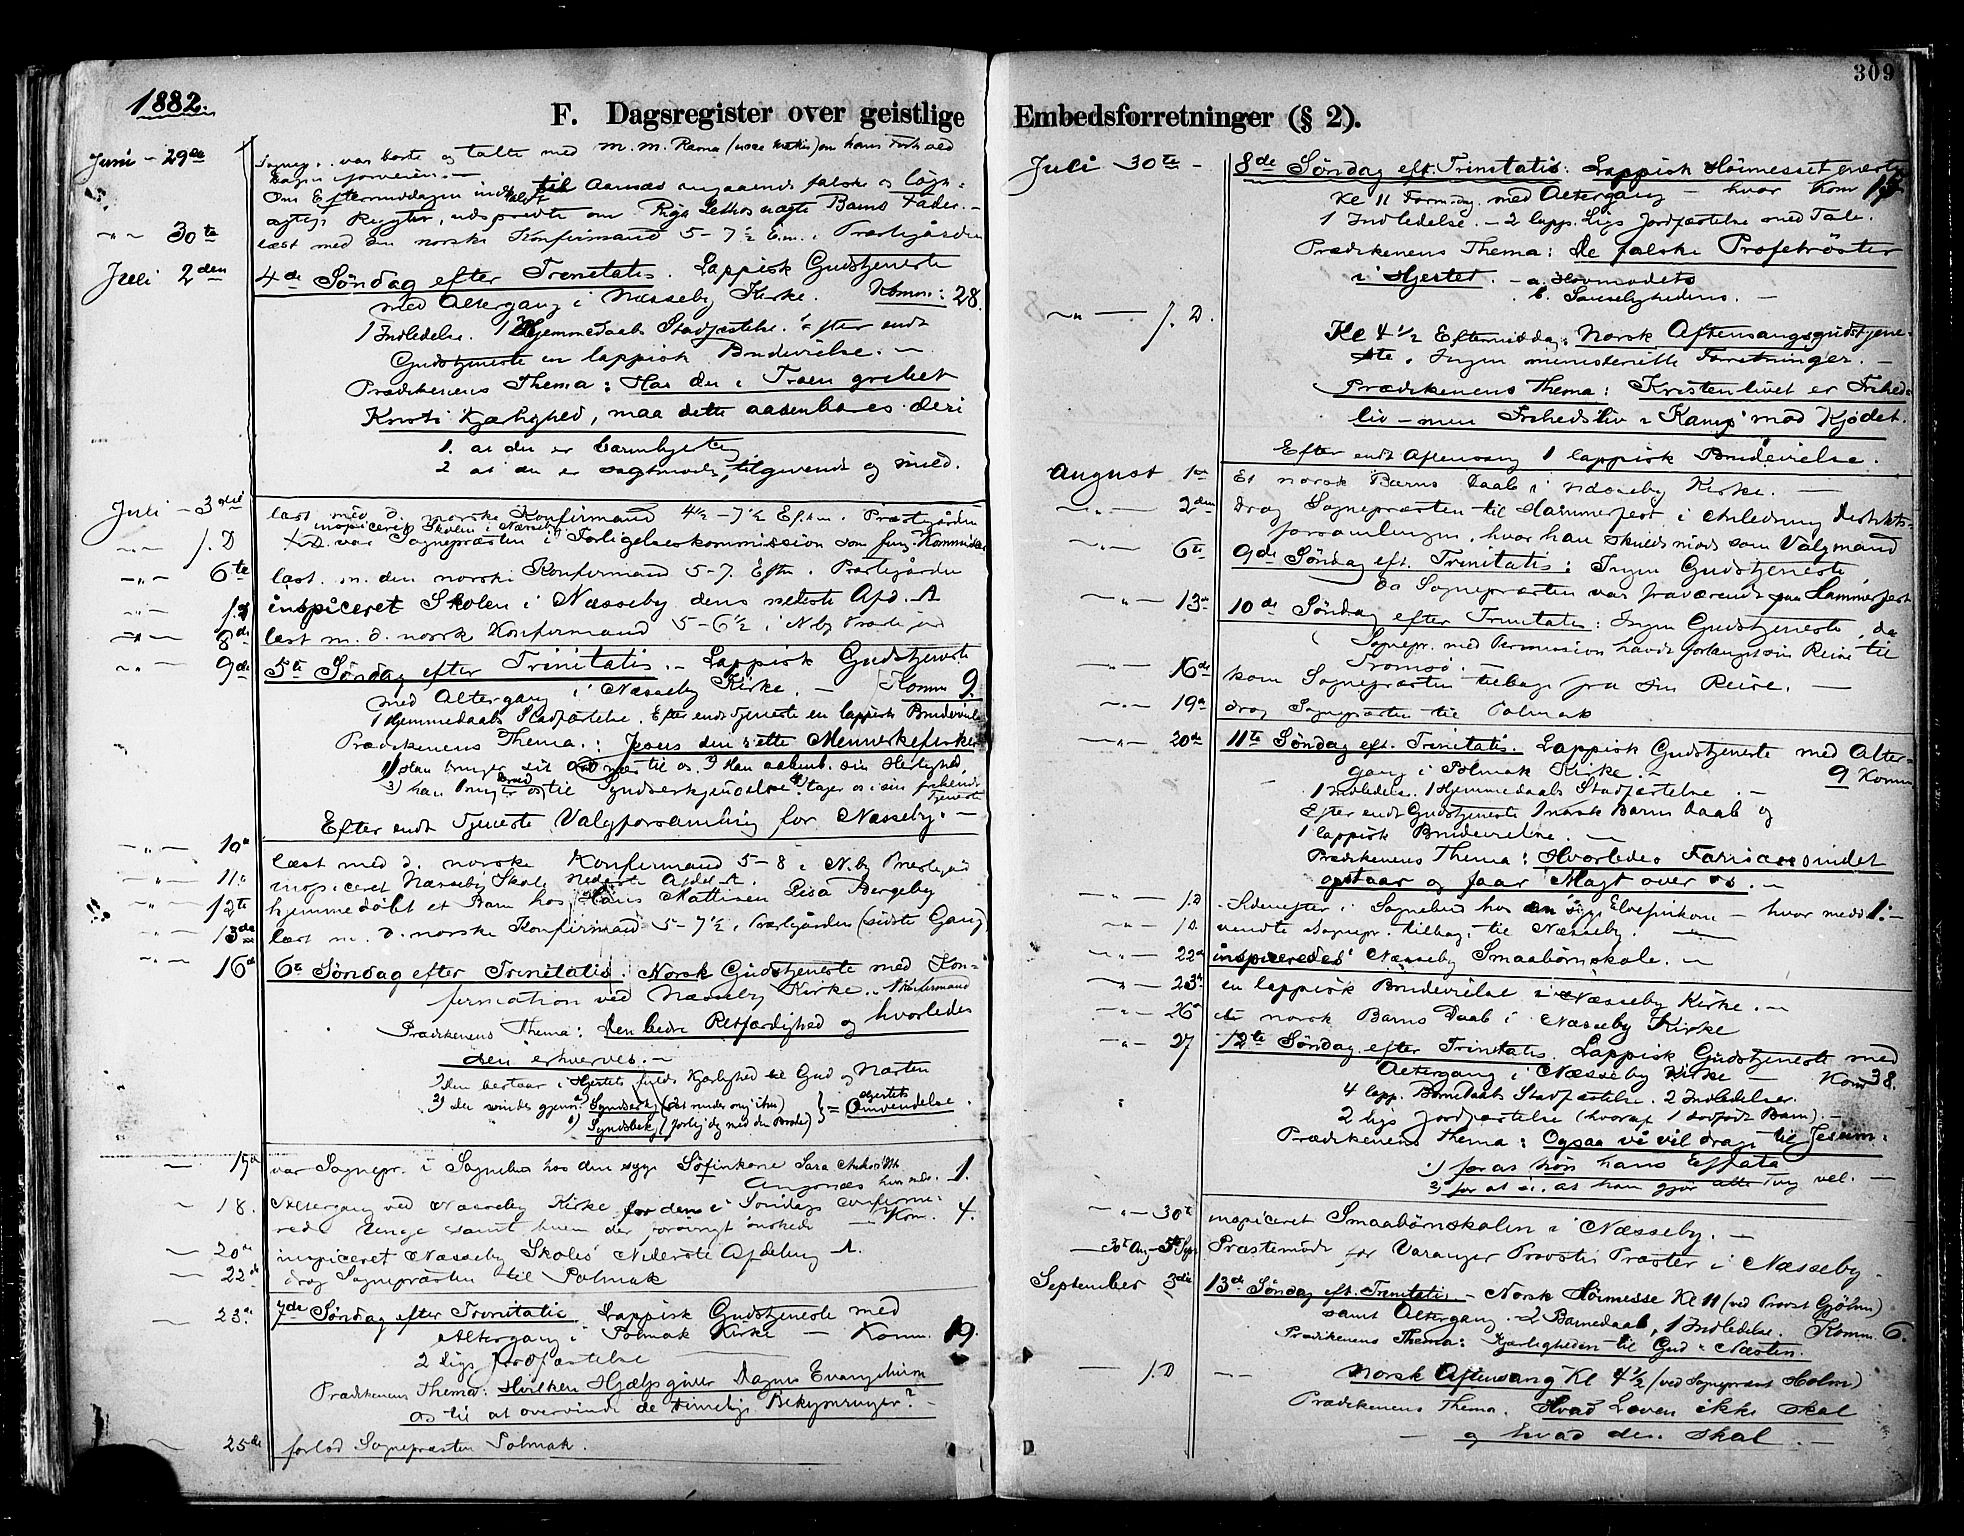 309
1882.
F. Dagsregister over geistlige Embedsforretninger (§ 2).
Juni - 29de var borte og talte med M. M. om hans Forhold
Om Eftermiddagen til angaaende falske og løgn-
agtige Rygter, udspredte om Barns Fader. -
" " 30te læst med den norske Konfirmand 5-7½ E.m. i Præstegården
Juli 2den 4de Søndag efter Trinitatis. Lappisk Gudstjeneste
med Altergang i Næsseby Kirke. Komm: 28.
1 Indledelse. 1 Hjemmedaabs Stadfæstelse. Efter endt
Gudstjeneste en lappisk Brudevielse. -
Prædikenens Thema: Har du i Troen grebet
Kristi Kjærlighed, maa dette aabenbares deri
1. at du er barmhjertig
2 at du er sagtmodig, tilgivende og mild.
Juli - 3die læst med d. norske Konfirmand 4½-7½ Eftm. Præstegården
inspiceret Skolen i Næsseby
" - s. D var Sognepræsten i Forligelseskommission som fung. Kommissær
" " - 6te læst m. den norske Konfirmand 5-7. Eftm. i Præstegården
s. D inspiceret Skolen i Næsseby dens nederste Afd. A
" - 8de læst m. d. norsk Konfirmand 5-6½ i N.by Præstegård
" - 9de 5te Søndag efter Trinitatis. - Lappisk Gudstjeneste
med Altergang i Næsseby Kirke. - Komm 9.
1 Hjemmedaabs Stadfæstelse. Efter endt Tjeneste en lappisk Brudevielse
Prædikenens Thema: Jesus den rette Menneskefisker
1) Han bruger sit Ord nær til os. 2) Han aabenb. sin Herlighed
3) han bringer os til Syndserkjendelse 4) tager os i sin
Tjeneste
Efter endt Tjeneste Valgforsamling for Næsseby. -
" - 10de læst med d. norske Konfirmand 5-8 i N.by Præstegård
" - 11te inspiceret Næsseby Skole nederste Afdel A.
" - 12te hjemmedøbt et Barn hos Hans Mathisen Lisa Bergeby
" - 13de læst m. d. norske Konfirmand 5-7½ i Præstegården (sidste Gang)
" - 16de 6te Søndag efter Trinitatis. Norsk Gudstjeneste med Kon-
firmation ved Næsseby Kirke. 1 Konfirmand
Prædikenens Thema: Den bedre Retfærdighed og hvorledes
den erhverves. -
1) den bestaar i Hjertets fulde Kjærlighed til Gud og Næsten
2) den vindes gjenn. a) Syndserkj (
b) Syndsbek. (forlig dig med din Broder) } = Hjertets Omvendelse.
- 17de var Sognepr. i Sognebud hos den syge Søfinkone Sara
Angsnæs 1.
- 18. Altergang ved Næsseby Kirke for den i Søndags confirme-
rede Unge samt hvem der forøvrigt ønskede - Kom. 4.
- 20de inspiceret Næsseby Skoles Nederste Afdeling A.
- 22de drog Sognepræsten til Polmak
- 23de 7de Søndag efter Trinitatis Lappisk Gudstjeneste med
Altergang i Polmak Kirke - Komm. 19.
2 Ligs Jordfæstelse
Prædikenens Thema: Hvilken Hjælp giver Dagens Evangelium
os til at overvinde de timelige Bekymringer? -
- 25de forlod Sognepræsten Polmak.
Juli 30te - 8de Søndag eft. Trinitatis. Lappisk Høimesse
Kl 11 Formdag med Altergang - hvor Kom
1 Indledelse. - 2 lapp. Ligs Jordfæstelse med Tale.
Prædikenens Thema: De falske Profetrøster
i Hjertet. - a. Hovmodets
b. Sanselighedens. -
" - s. D. Kl 4½ Eftermiddag: Norsk Aftensangsgudstjene-
ste. Ingen ministerielle Forretninger. -
Prædikenens Thema: Kristenlivet er Friheds-
liv - men Frihedsliv i Kamp mod Kjødet.
Efter endt Aftensang 1 lappisk Brudevielse.
August 1ste Et norsk Barns Daab i Næsseby Kirke. -
" - 2den Drog Sognepræsten til Hammerfest i Anledning Distrikts-
forsamlingen, hvor han skulde møde som Valgmand
" - 6te 9de Søndag eft. Trinitatis: Ingen Gudstjeneste
da Sognepræsten var fraværende paa Hammerfest
" - 13de 10de Søndag efter Trinitatis: Ingen Gudstjeneste, da
Sognepr. med Permission havde forlænget sin Reise til
Tromsø. -
" - 16de kom Sognepræsten tilbage fra sin Reise. -
" - 19de drog Sognepræsten til Polmak
" - 20de 11te Søndag eft. Trinitatis. Lappisk Gudstjeneste med Alter-
gang i Polmak Kirke. - 9 Komm
1 Indledelse. 1 Hjemmedaabs Stadfæstelse. -
Efter endt Gudstjeneste 1 norsk Barns Daab og
1 lappisk Brudevielse. -
Prædikenens Thema: Hvorledes Farisæersindet
opstaar og faar Magt over os. -
" - s. D. Derefter i Sognebud hos en syg Elvefinkone - hvor medd 1. -
" - s. D. vendte Sognepr. tilbage til Næsseby. -
" - 22de inspiceredes Næsseby Smaabørnskole. -
" - 23de en lappisk Brudevielse i Næsseby Kirke. -
" - 26de et norsk Barns Daab i Næsseby Kirke
" - 27 12te Søndag efter Trinitatis. Lappisk Gudstjeneste med
Altergang i Næsseby Kirke - Kom 38.
4 lapp. Børnedaabs Stadfæstelse. 2 Indledelser.
2 Ligs Jordfæstelse (hvoraf 1 dødfødt Barn). -
Prædikenens Thema: Ogsaa vi vil drage til Jesum:
1) for at høre hans Effata
2) for at se, at han gjør alle Ting vel. -
" - 30te inspiceret Smaabørnskolen i Næsseby. -
- 30te Aug - 5te Sept Præstemøde for Varanger Provsti Præster i Næsseby.
September 3die 13de Søndag eft. Trinitatis - Norsk Høimesse Kl 11 (ved Provst Gjølme)
samt Altergang. 2 Barnedaab, 1 Indledelse. Komm. 6.
Prædikenens Thema: Kjærligheden til Gud & Næsten.
- s. D - Norsk Aftensang Kl 4½ (ved Sognepræst Holm)
Prædikenens Thema. Hvad Loven ikke skal
- og hvad den skal. -